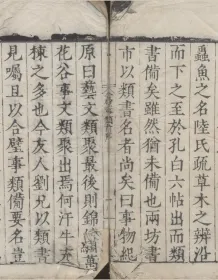 蟲魚之名陸氏疏草木之辨沿
而下之至於孔白六帖出而類
書備矣雖然猶未備也兩坊書
市以類書名者尚矣曰事物紀
原曰藝文類聚最後則錦繡萬
花谷事文類聚出焉何汗牛充
棟之多也今友人劉兄以類書
見囑且以合璧事類備要名豈